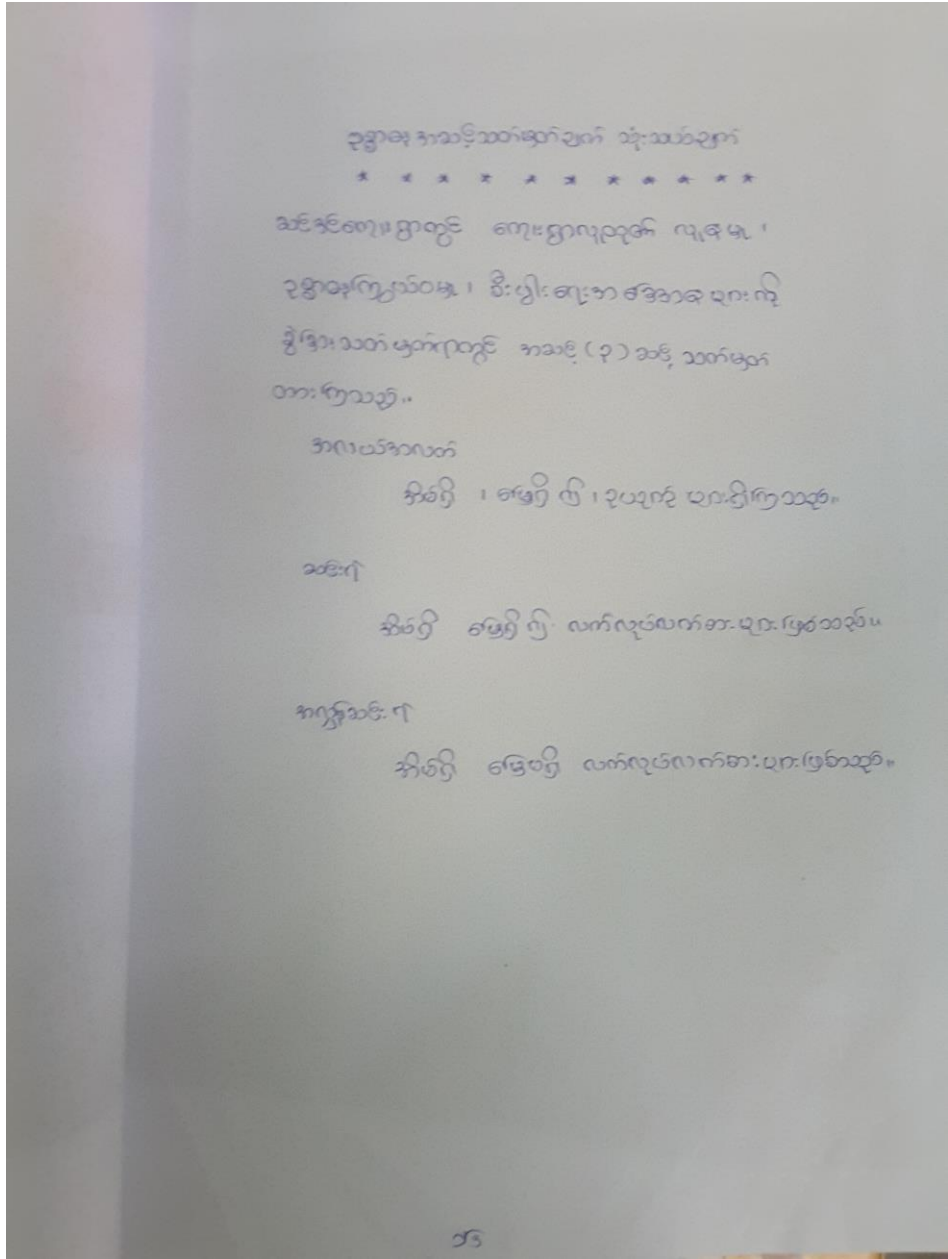 ဥစ္စာဓန အဆင့်သတ်မှတ်ချက် သုံးသပ်ချက်
* * * * * * * * * * *
ဆင်ခင်ကျေးရွာတွင် ကျေးရွာလူထု၏ လူနေမှု၊
ဥစ္စာဓနကြွယ်ဝမှု၊ စီးပွါးရေးအခြေအနေများကို
ခွဲခြားသတ်မှတ်ရာတွင် အဆင့် (၃) ဆင့် သတ်မှတ်
ထားကြသည်။
အလယ်အလတ်
အိမ်ရှိ ၊ မြေရှိ ၍ ၊ ဥယျာဉ် များရှိကြသည်။
ဆင်းရဲ
အိမ်ရှိ မြေရှိ ၍ လက်လုပ်လက်စားများဖြစ်သည်။
အလွန်ဆင်းရဲ
အိမ်ရှိ မြေမရှိ လက်လုပ်လက်စားများဖြစ်သည်။